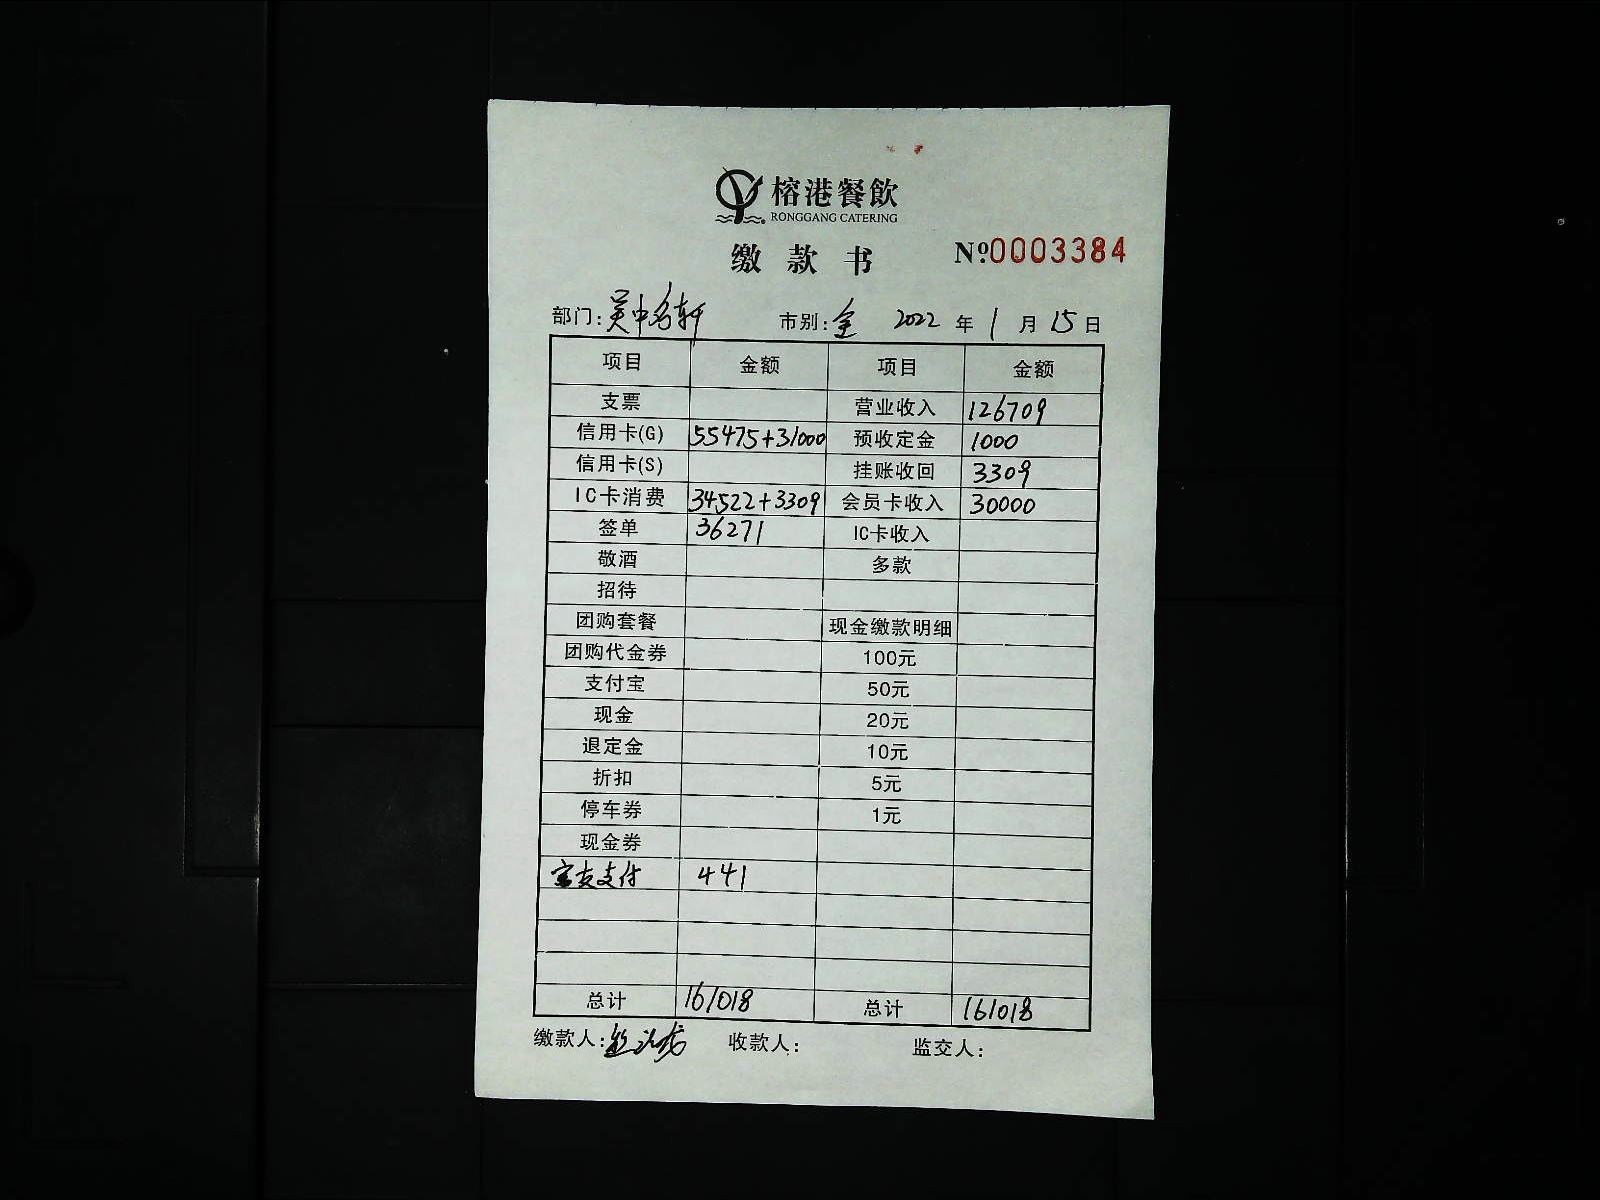 榕港餐飲
RONGGANG CATERING
缴款书 Nº.0003384
部门:吴中名轩 市别:全 2022年1月15日
项目 金额 项目 金额
支票 营业收入 126709
信用卡(G) 55475+31000 预收定金 1000
信用卡(S) 挂账收回 3309
IC卡消费 34522+3309 会员卡收入 30000
签单 36271 IC卡收入
敬酒 多款
招待
团购套餐 现金缴款明细
团购代金券 100元
支付宝 50元
现金 20元
退定金 10元
折扣 5元
停车券 1元
现金券
支付 441
总计 161018 总计 161018
缴款人: 收款人: 监交人: